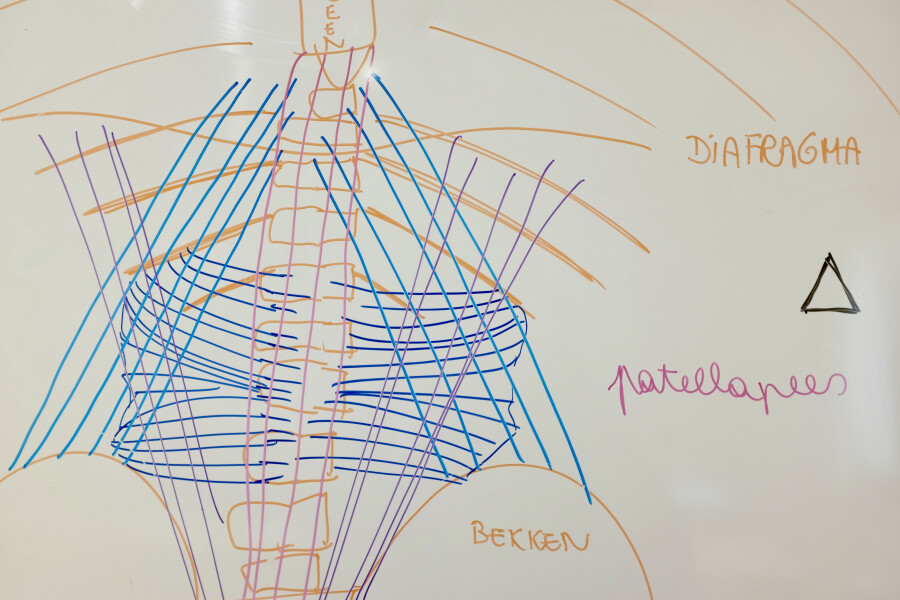 EEN
DIAFRAGMA
patellapees
BEKKEN